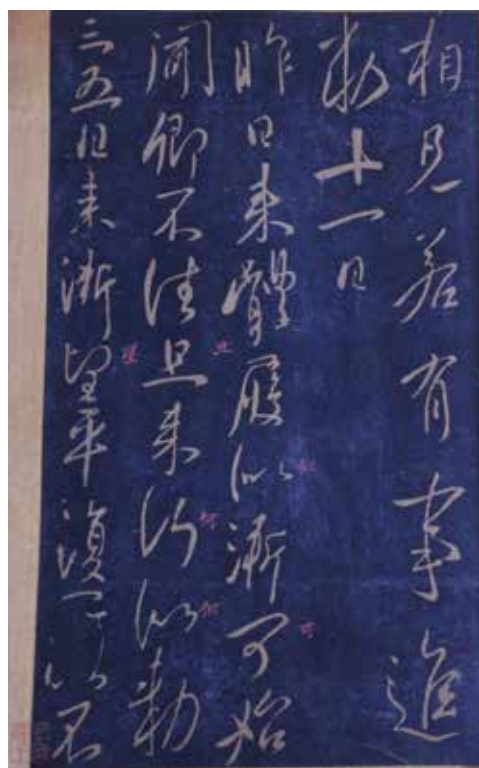 相見若有事進
勅十一日
昨日來體履似漸可始
聞卿不佳旦來何似勅
三五日來漸望平復可以不